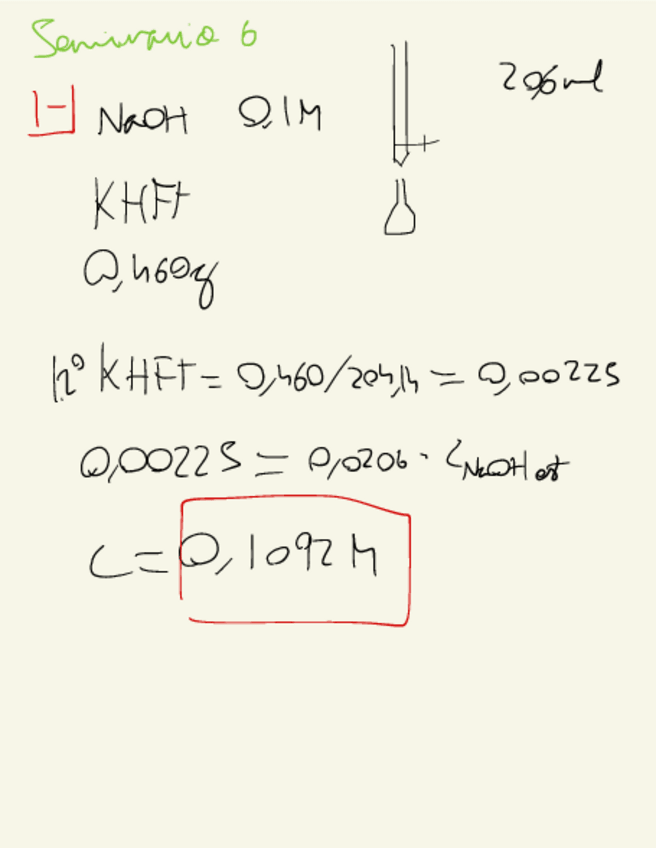 Seminario 6
1- NaOH 0,1M 20,6ml
KHFt
0,460g
nº KHFT = 0,460/204,14 = 0,00225
0,00225 = 0,0206 · CNaOH est
C = 0,1092 M